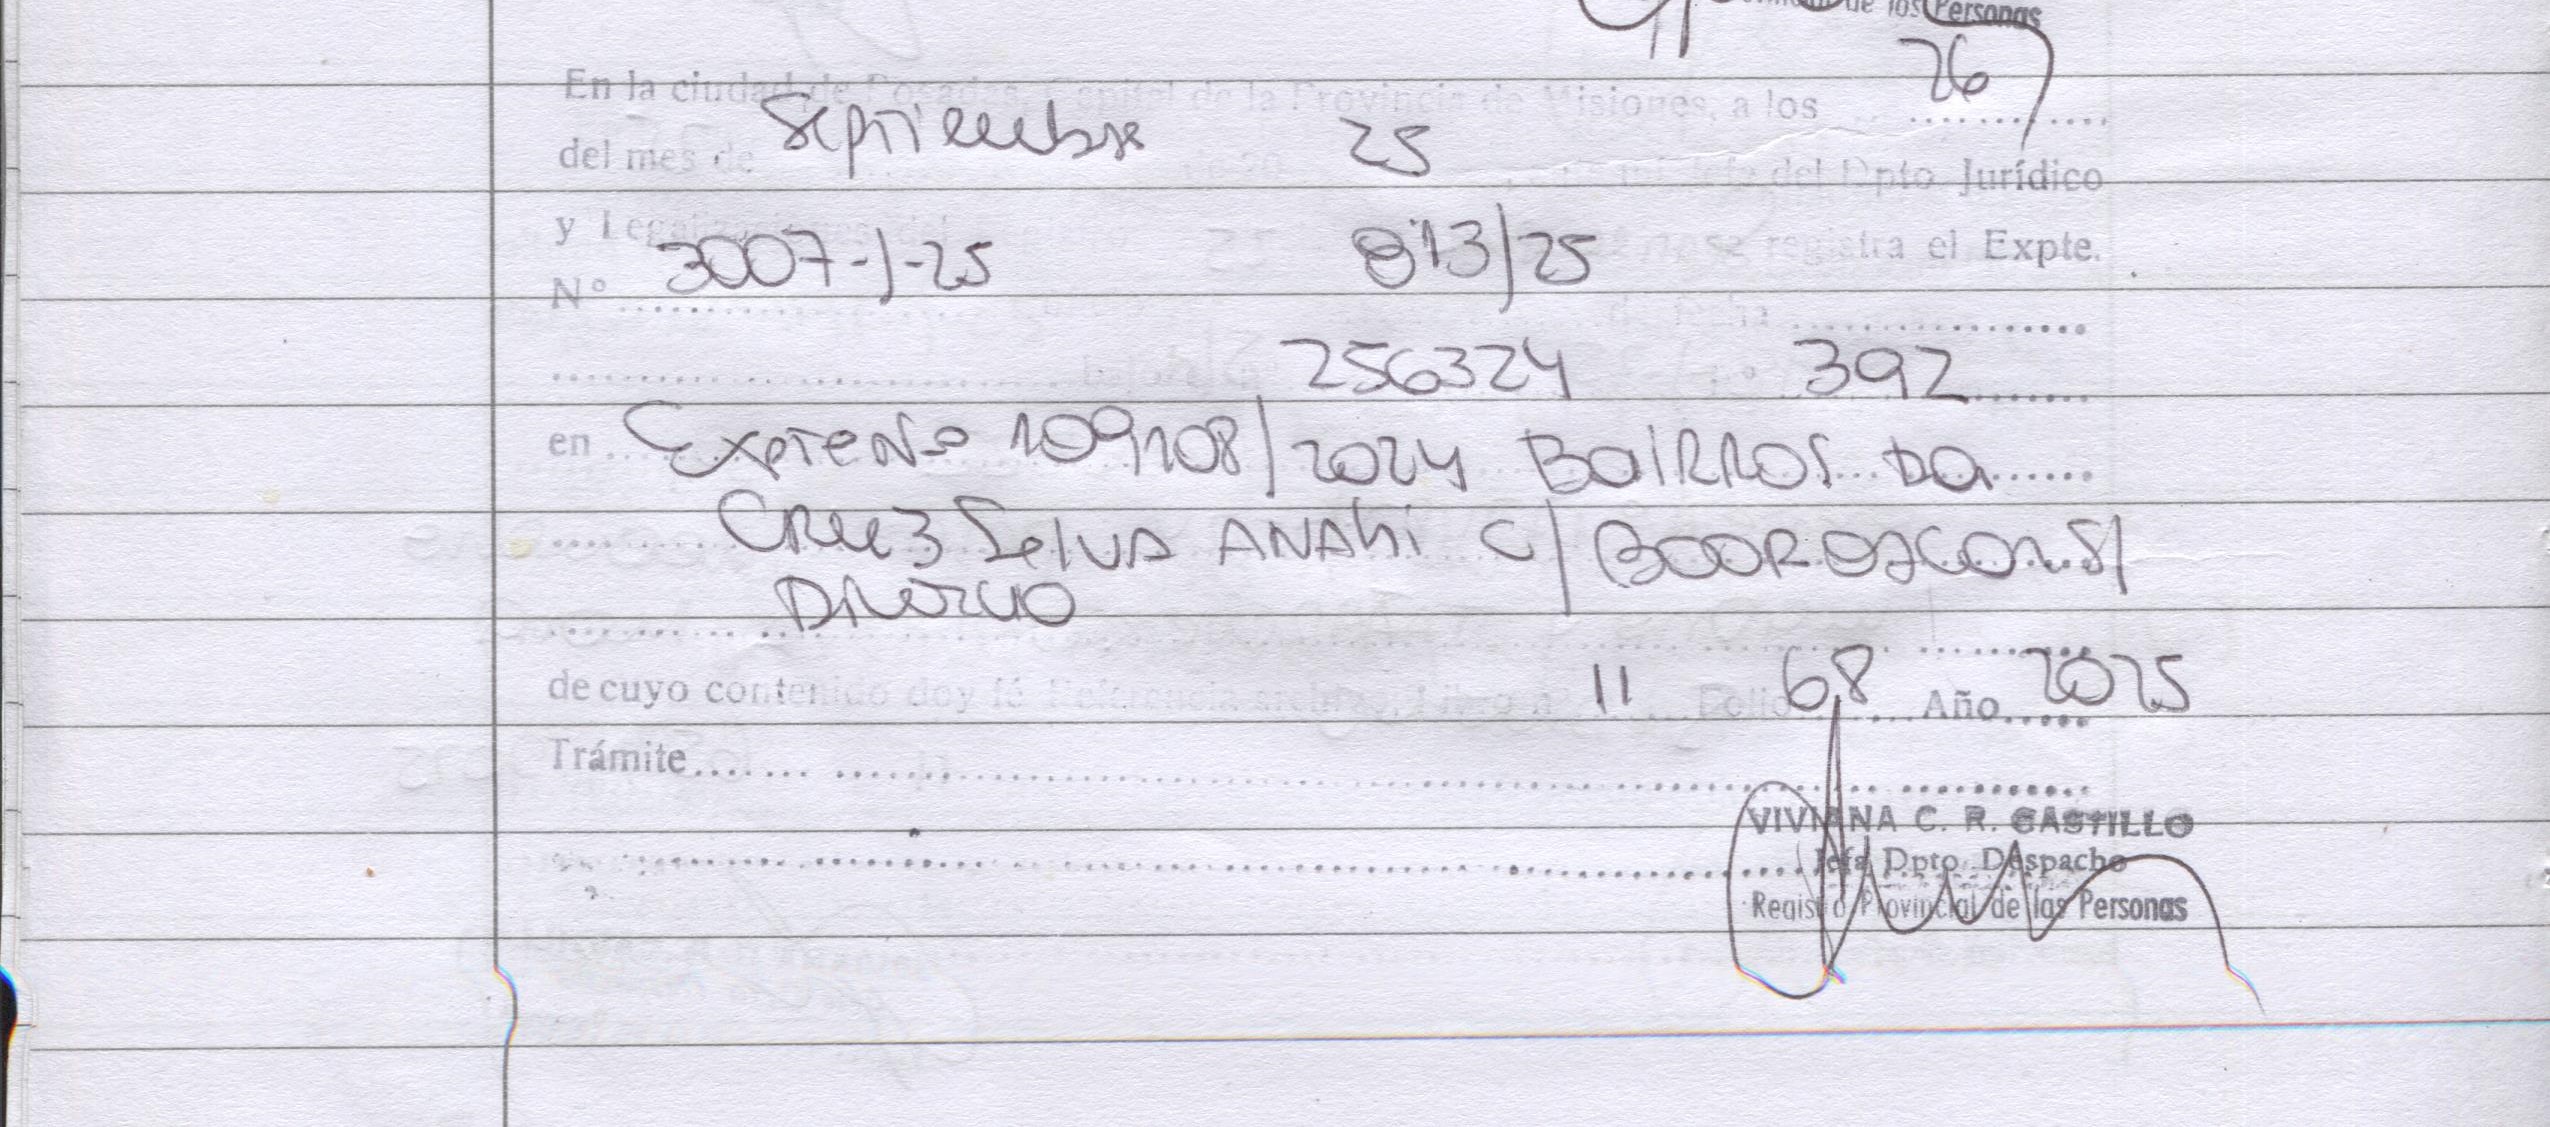 de las Personas
En la ciudad de Posadas, Capital de la Provincia de Misiones, a los 26
del mes de Septiembre 25 del Dpto Jurídico
y registra el Expte.
Nº 3007-J-25 813/25
256324 392
en Expte Nº 109108/2024 BAIRROS DA
CRUZ SELVA ANAHI C/ S/
DIVORCIO
de cuyo contenido doy fé Referencia archivo, Libro nº 11 Folio 68 Año 2025
Trámite
VIVIANA C. R. CASTILLO
Jefa Dpto. Despacho
Registro Provincial de las Personas